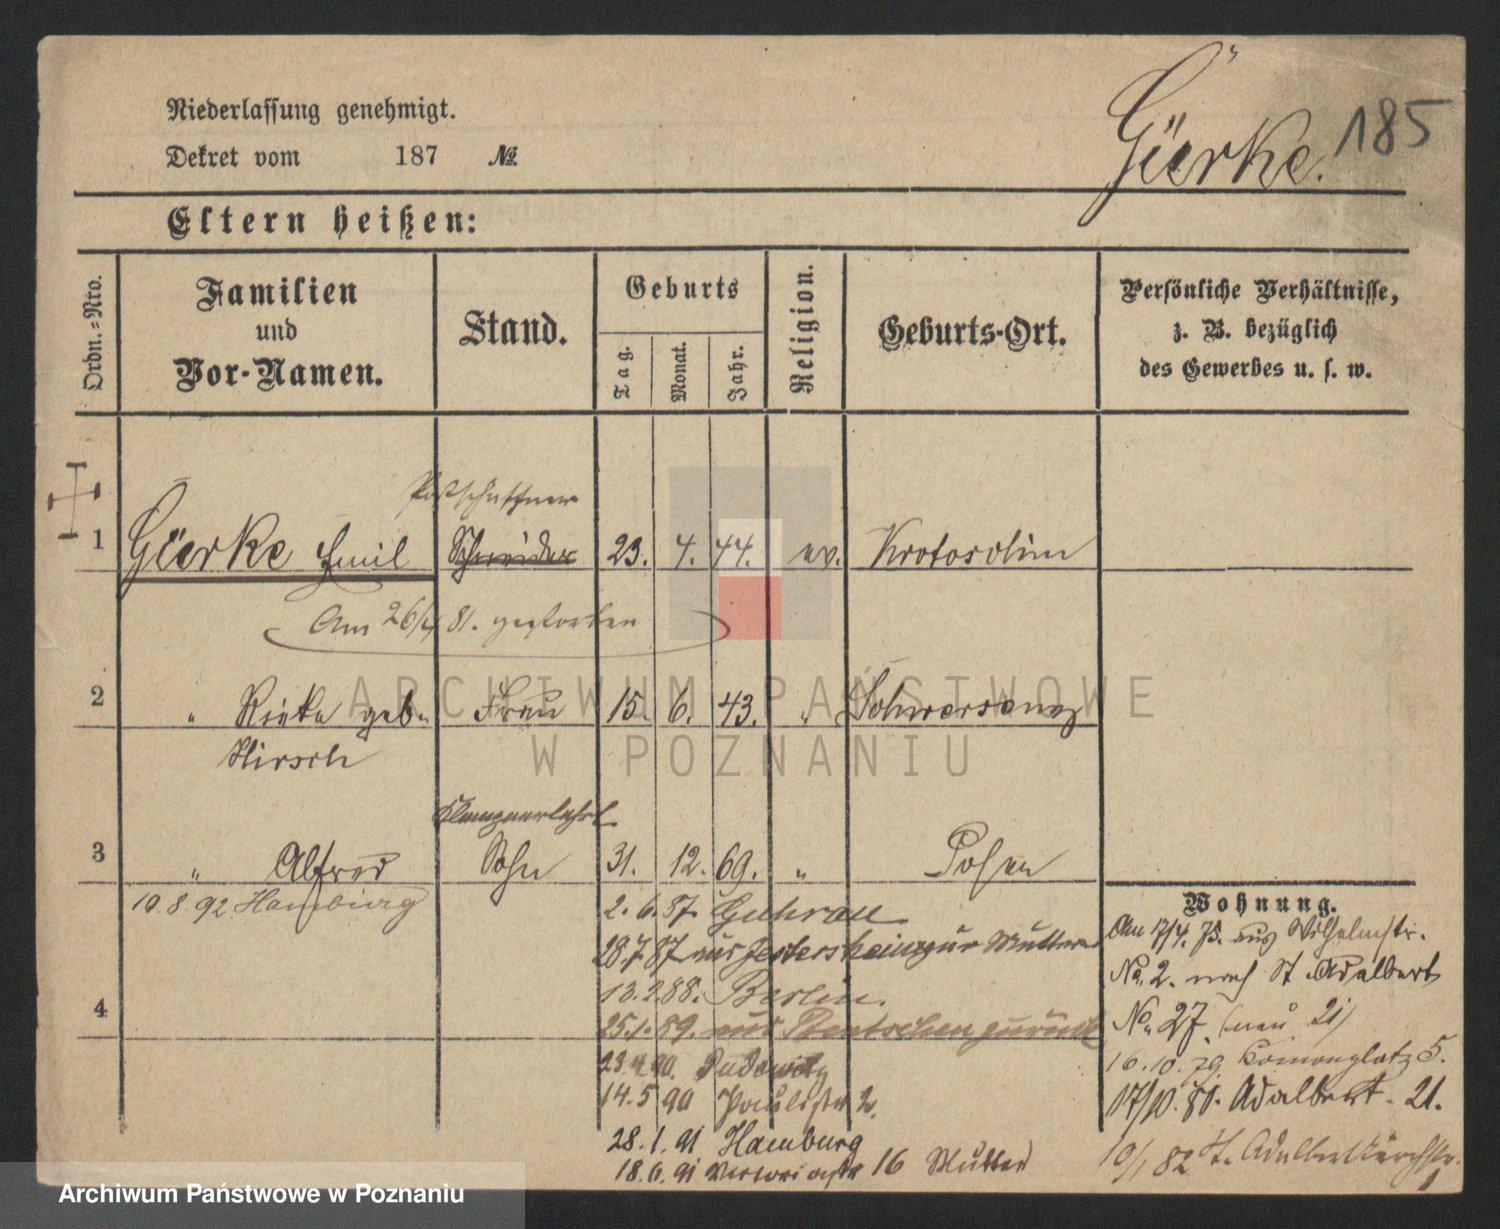 Niederlassung genehmigt.
Dekret vom 187 №
Gierke.
185
Eltern heißen:
Ordn.-Nro.
Familien
und
Vor-Namen.
Stand.
Geburts
Tag.
Monat.
Jahr.
Religion.
Geburts-Ort.
Persönliche Verhältnisse,
z. B. bezüglich
des Gewerbes u. s. w.
Postschaffner
1 Gierke Emil Schneider 23. 4. 44. ev. Krotoschin
Am 26/4 81. gestorben
2 " Rieke geb. Frau 15. 6. 43. " Schwersenz
Hirsch
Klempnerlehrl.
3 " Alfred Sohn 31. 12. 69. " Posen
10.8.92 Hamburg
2. 6. 87. Guhrau
28.7.87 aus zur Mutter
13.2.88. Berlin.
4
25.1.89. aus Bentschen zurück
23.4.90. Pudewitz
14.5.90 Paulistr 2.
28.1.91 Hamburg
18.6.91 Victoriastr 16 Mutter
Wohnung.
Am 17/4. 75. aus Wilhelmstr.
No. 2. nach St Adalbert
No. 27. (neu 21)
16.10.79. 5.
17/10. 81. Adalbert. 21.
10/1 82 St. Adalbertkirchstr. 1
ARCHIWUM PAŃSTWOWE
W POZNANIU
Archiwum Państwowe w Poznaniu